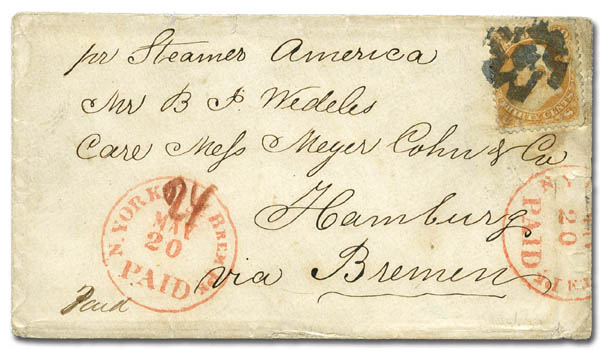 pr Steamer America
Mr B I. Wedeles
Care Mess Meyer Cohn & Co
Hamburg
via Bremen
Paid
24
N. YORK BREM. PK
MAY
20
PAID
20
PAID
THIRTY CENTS